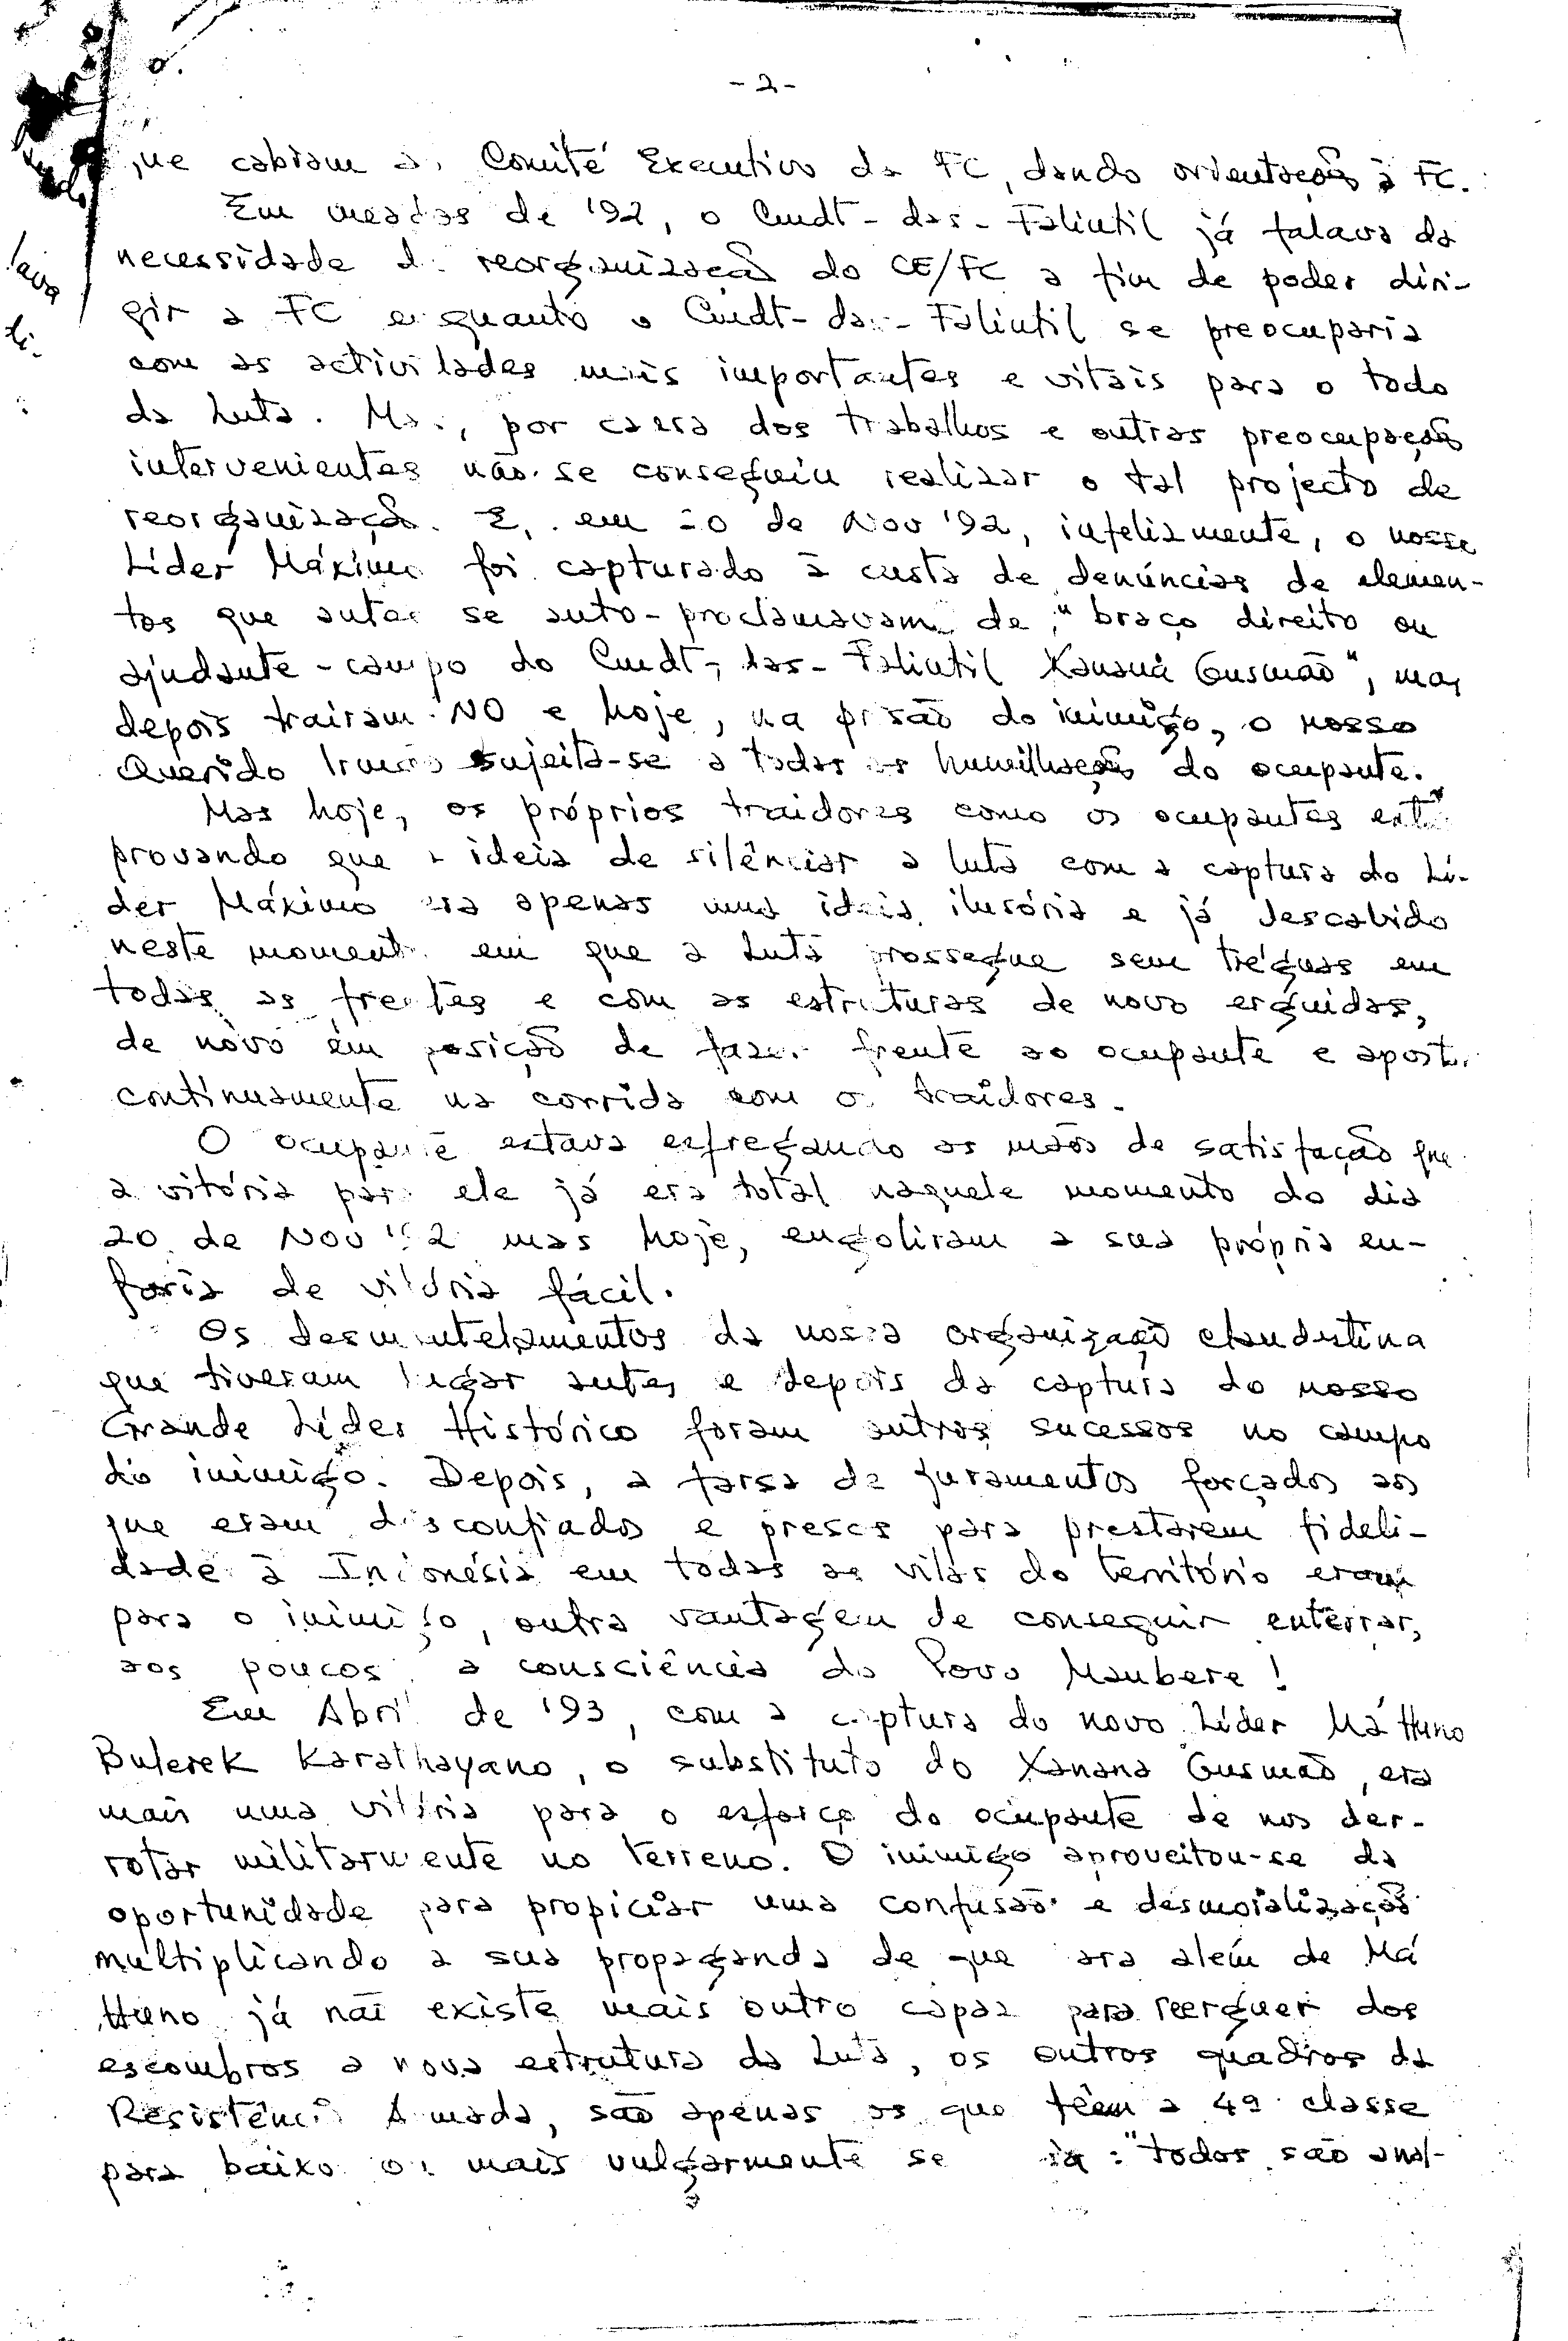 - 2 -
que cabiam ao Comité Executivo da FC, dando orientações à FC.
Em meados de '92, o Cmdt-das-Falintil já falava da
necessidade de reorganização do CE/FC a fim de poder diri-
gir a FC enquanto o Cmdt-das-Falintil se preocuparia
com as actividades mais importantes e vitais para o todo
da Luta. Mas, por causa dos trabalhos e outras preocupações
intervenientes não se conseguiu realizar o tal projecto de
reorganização. E, em 20 de Nov '92, infelizmente, o nosso
Líder Máximo foi capturado à custa de denúncias de elemen-
tos que antes se auto-proclamavam de "braço direito ou
ajudante-campo do Cmdt-das-Falintil Xanana Gusmão", mas
depois trairam-NO e hoje, na prisão do inimigo, o nosso
Querido Irmão sujeita-se a todas as humilhações do ocupante.
Mas hoje, os próprios traidores como os ocupantes estão
provando que a ideia de silênciar a luta com a captura do Lí-
der Máximo era apenas uma ideia ilusória e já descabido
neste momento em que a Luta prossegue sem tréguas em
todas as frentes e com as estruturas de novo erguidas,
de novo em posição de fazer frente ao ocupante e apostar
continuamente na corrida com os traidores.
O ocupante estava esfregando as mãos de satisfação que
a vitória para ele já era total naquele momento do dia
20 de Nov '92 mas hoje, engoliram a sua própria eu-
foria de vitória fácil.
Os desmantelamentos da nossa organização clandestina
que tiveram lugar antes e depois da captura do nosso
Grande Líder Histórico foram outros sucessos no campo
do inimigo. Depois, a farsa de juramentos forçados aos
que eram disconfiados e presos para prestarem fideli-
dade à Indonésia em todas as vilas do território eram
para o inimigo, outra vantagem de conseguir enterrar,
aos poucos, a consciência do Povo Maubere!
Em Abril de '93, com a captura do novo Líder Má Huno
Bulerek Karathayano, o substituto do Xanana Gusmão, era
mais uma vitória para o esforço do ocupante de nos der-
rotar militarmente no terreno. O inimigo aproveitou-se da
oportunidade para propiciar uma confusão e desmoralização
multiplicando a sua propaganda de que para além de Má
Huno já não existe mais outro capaz para reerguer dos
escombros a nova estrutura da Luta, os outros quadros da
Resistência Armada, são apenas os que têm a 4ª classe
para baixo ou mais vulgarmente se : "todos são anal-